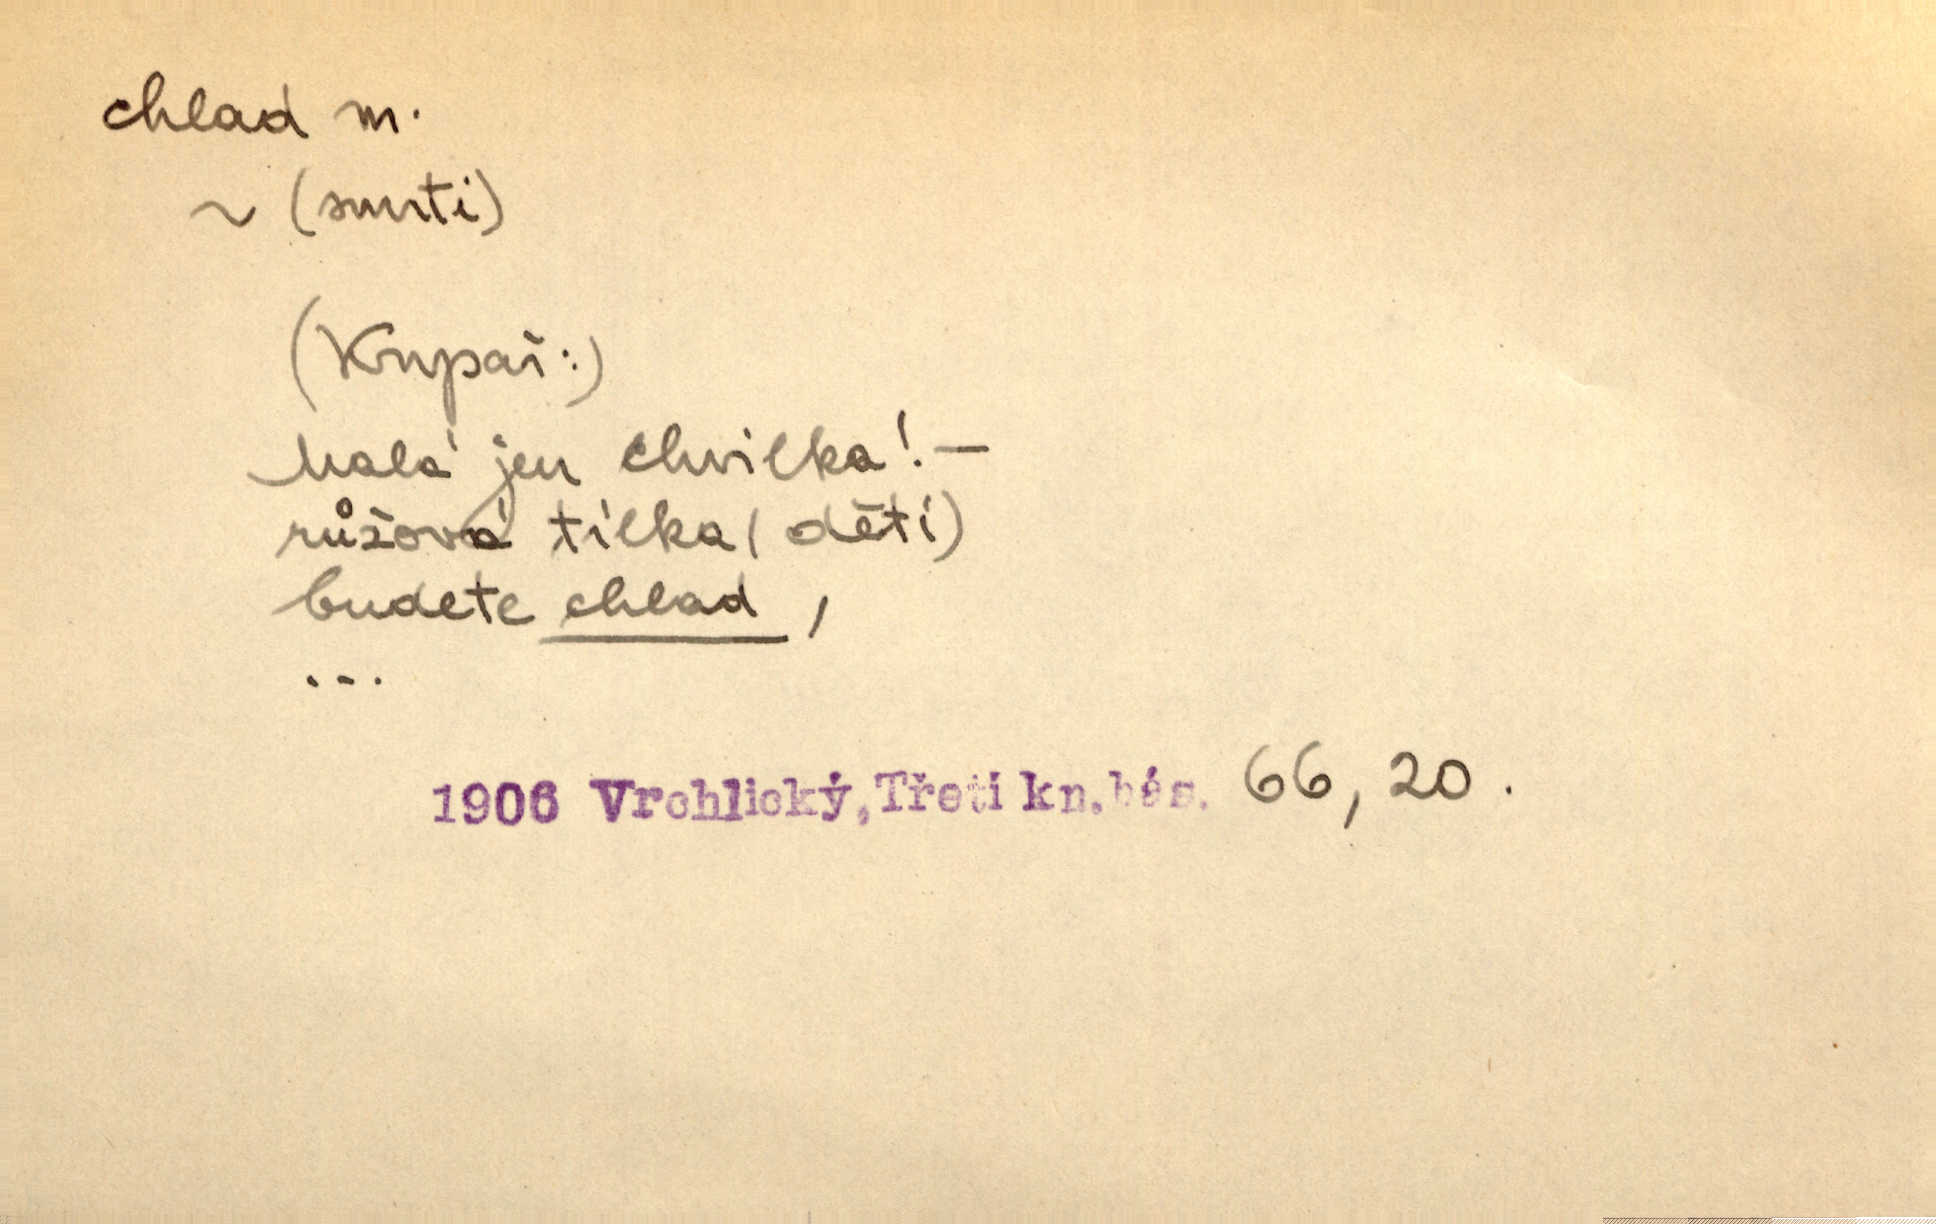 chlad m.
~ (smrti)
(Krupař:)
Malá jen chvilka! —
růžová tílka (dětí)
budete chlad,
...
1906 Vrchlický, Třetí kn. bás. 66, 20.